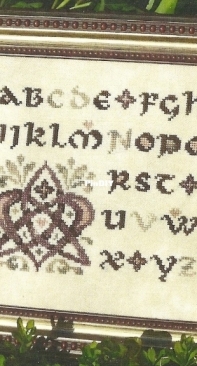 ABCDE✦FGH
IJKLMNOPQ
RST✦
UVW
X✦YZ